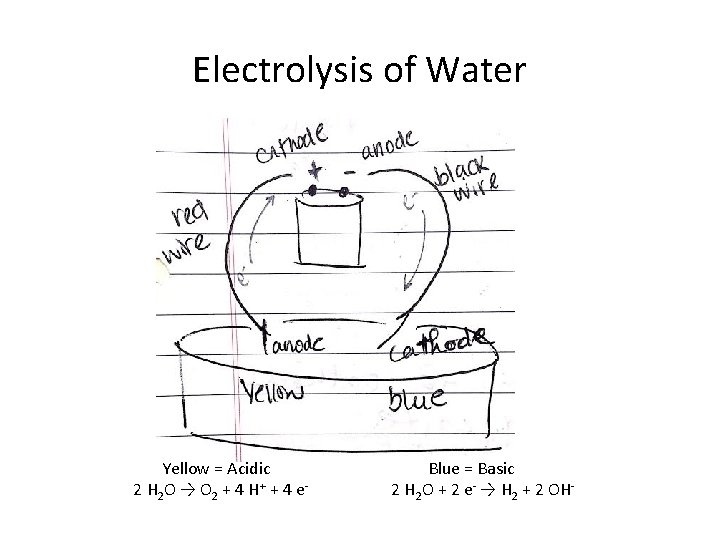 Electrolysis of Water
cathode anode
+ -
black
wire
red
wire
e⁻
e⁻
anode cathode
yellow blue
Yellow = Acidic
2 H₂O → O₂ + 4 H⁺ + 4 e⁻
Blue = Basic
2 H₂O + 2 e⁻ → H₂ + 2 OH⁻